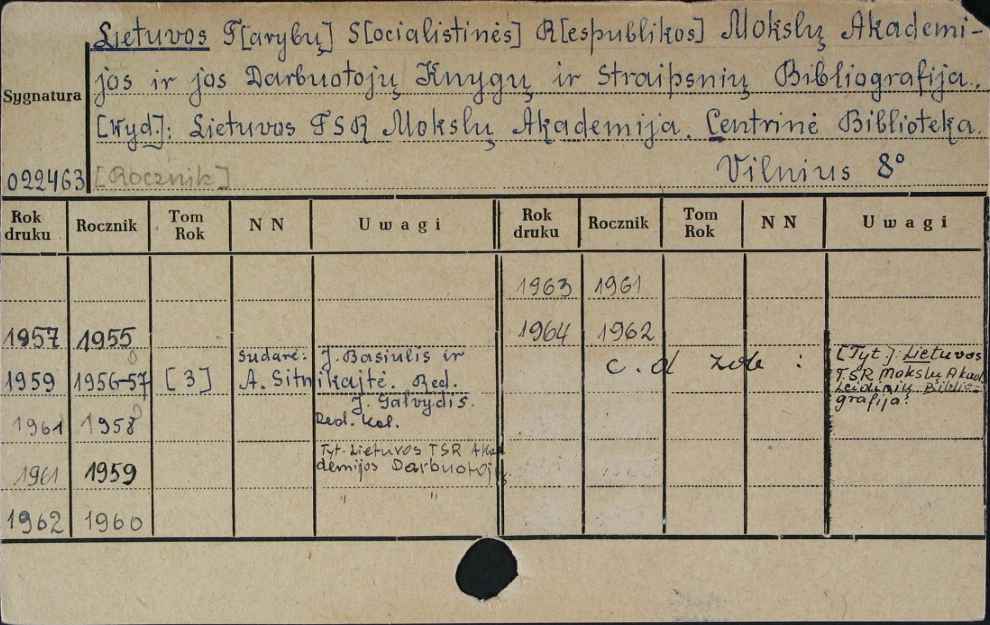 Lietuvos T[arybų] S[ocialistinės] R[espublikos] Mokslų Akademi-
jos ir jos Darbuotojų Knygų ir Straipsnių Bibliografija.
Sygnatura
[Wyd.]: Lietuvos TSR Mokslų Akademija. Centrinė Biblioteka.
Vilnius 8°
022463 [Rocznik]
Rok druku Rocznik Tom Rok N N Uwagi Rok druku Rocznik Tom Rok N N Uwagi
1963 1961
1957 1955 1964 1962
sudarė: J. Basiulis ir c. d zob : [Tyt.] Lietuvos
1959 1956-57 [3] A. Sitnikajtė. Red. TSR Mokslų Akad
J. Galvydis. Leidinių Biblio-
1961 1958 Red. kol. grafija!
Tyt. Lietuvos TSR Aka
1961 1959 demijos Darbuotojų
" "
1962 1960